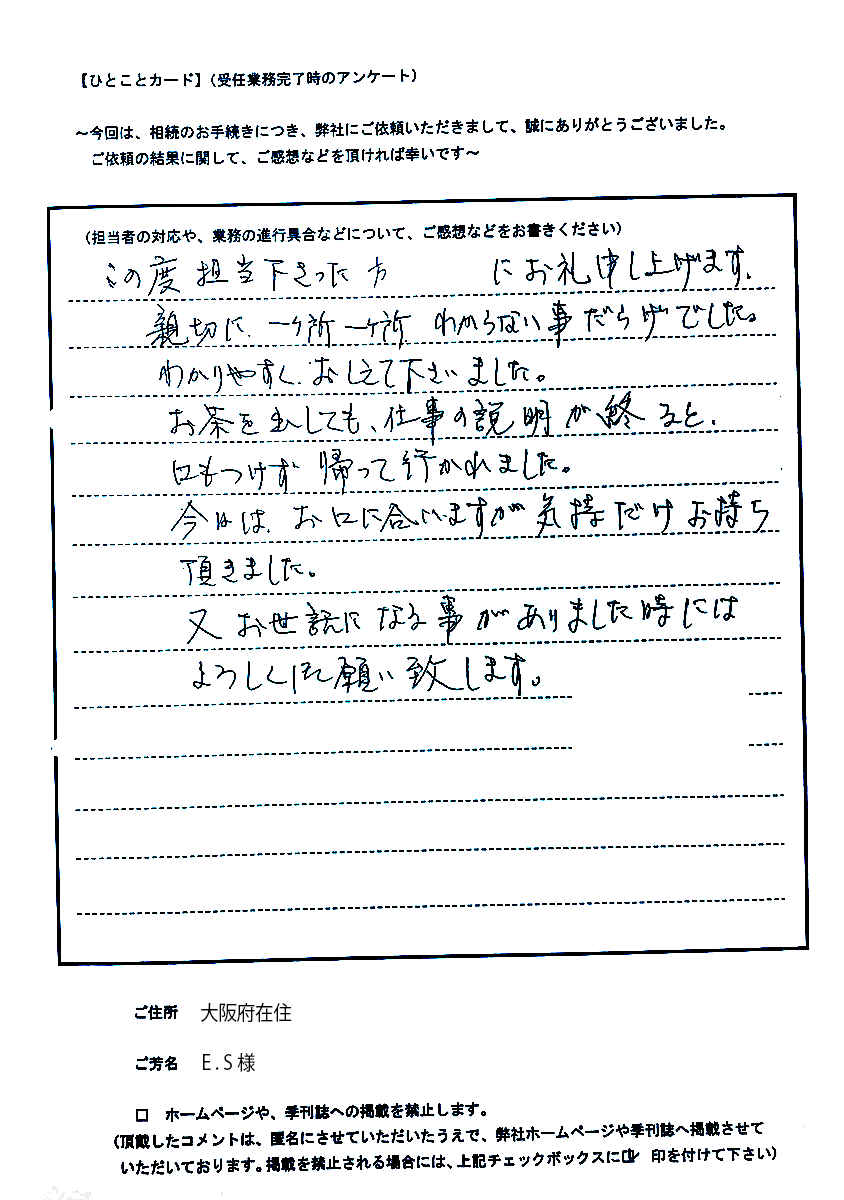 【ひとことカード】（受任業務完了時のアンケート）
～今回は、相続のお手続きにつき、弊社にご依頼いただきまして、誠にありがとうございました。
ご依頼の結果に関して、ご感想などを頂ければ幸いです～
（担当者の対応や、業務の進行具合などについて、ご感想などをお書きください）
この度担当下さった方　　　にお礼申し上げます、
親切に、一ヶ所一ヶ所 わからない事だらけでした。
わかりやすく、おしえて下さいました。
お茶を出しても、仕事の説明が終ると、
口もつけず帰って行かれました。
今日は、お口に合いますか気持だけお持ち
頂きました。
又お世話になる事がありました時には
よろしくお願い致します。
ご住所　大阪府在住
ご芳名　E.S様
□　ホームページや、季刊誌への掲載を禁止します。
（頂戴したコメントは、匿名にさせていただいたうえで、弊社ホームページや季刊誌へ掲載させて
いただいております。掲載を禁止される場合には、上記チェックボックスに☑ 印を付けて下さい）